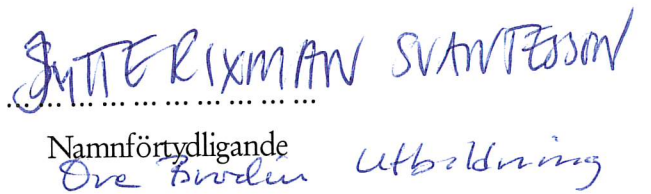 JYTTE RIXMAN SVANTESSON
Namnförtydligande
Ove Brodin Utbildning